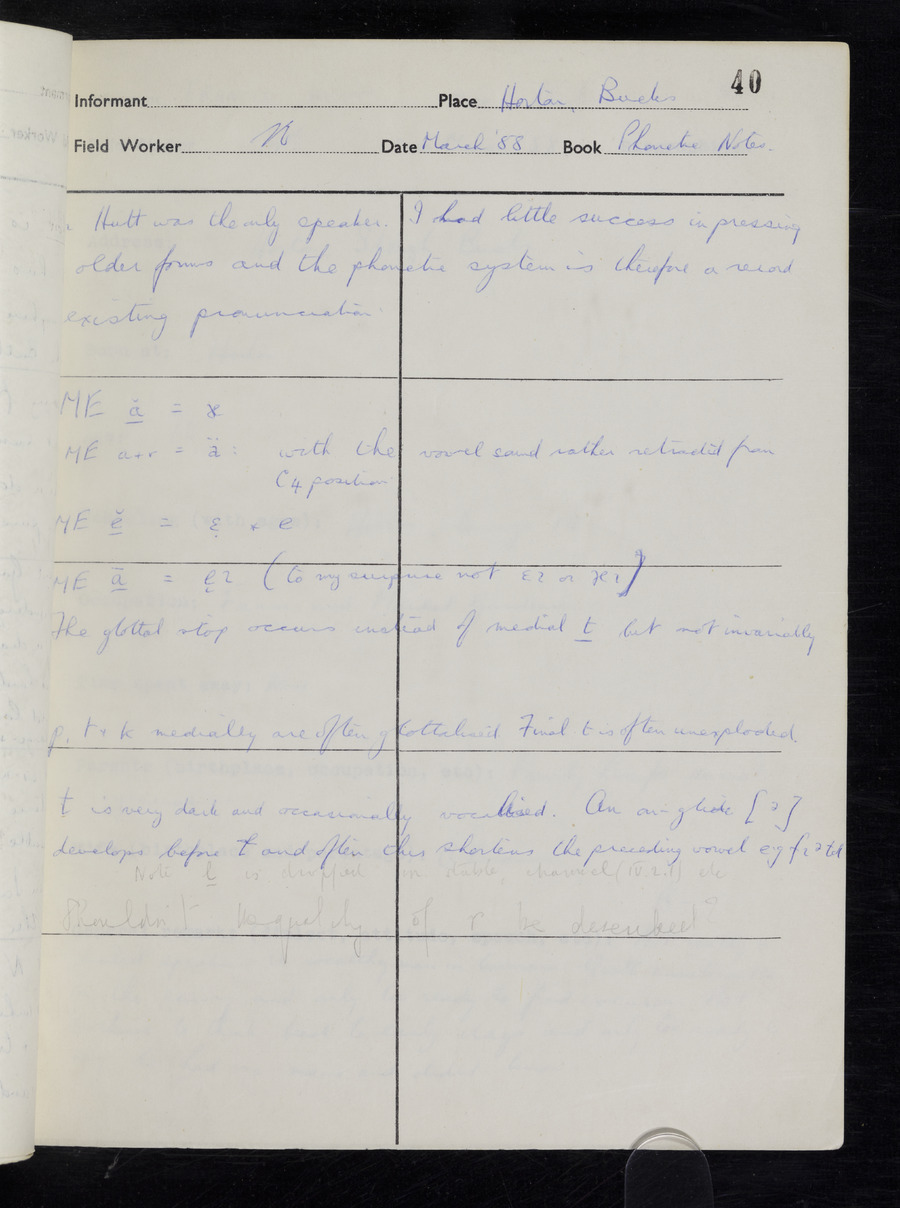 40
Informant Place Horton, Bucks
Field Worker Date March '58 Book Phonetic Notes.
Hutt was the only speaker. I had little success in pressing
older forms and the phonetic system is therefore a record
existing pronunciation.
ME ă =
ME a+r = ä: with the vowel sound rather retracted from
C4 position
ME ĕ = ɛ̣ + e
ME ā = (to my surprise not ɛɪ or æɪ)
The glottal stop occurs instead of medial t but not invariably
p, t + k medially are often glottalised Final t is often unexploded.
ɫ is very dark and occasionally vocalised. An on-glide [ə]
develops before ɫ and often this shortens the preceding vowel e.g.
Note l is dropped in stable, channel (IV.2.1) etc
Shouldn't the quality of r be described?